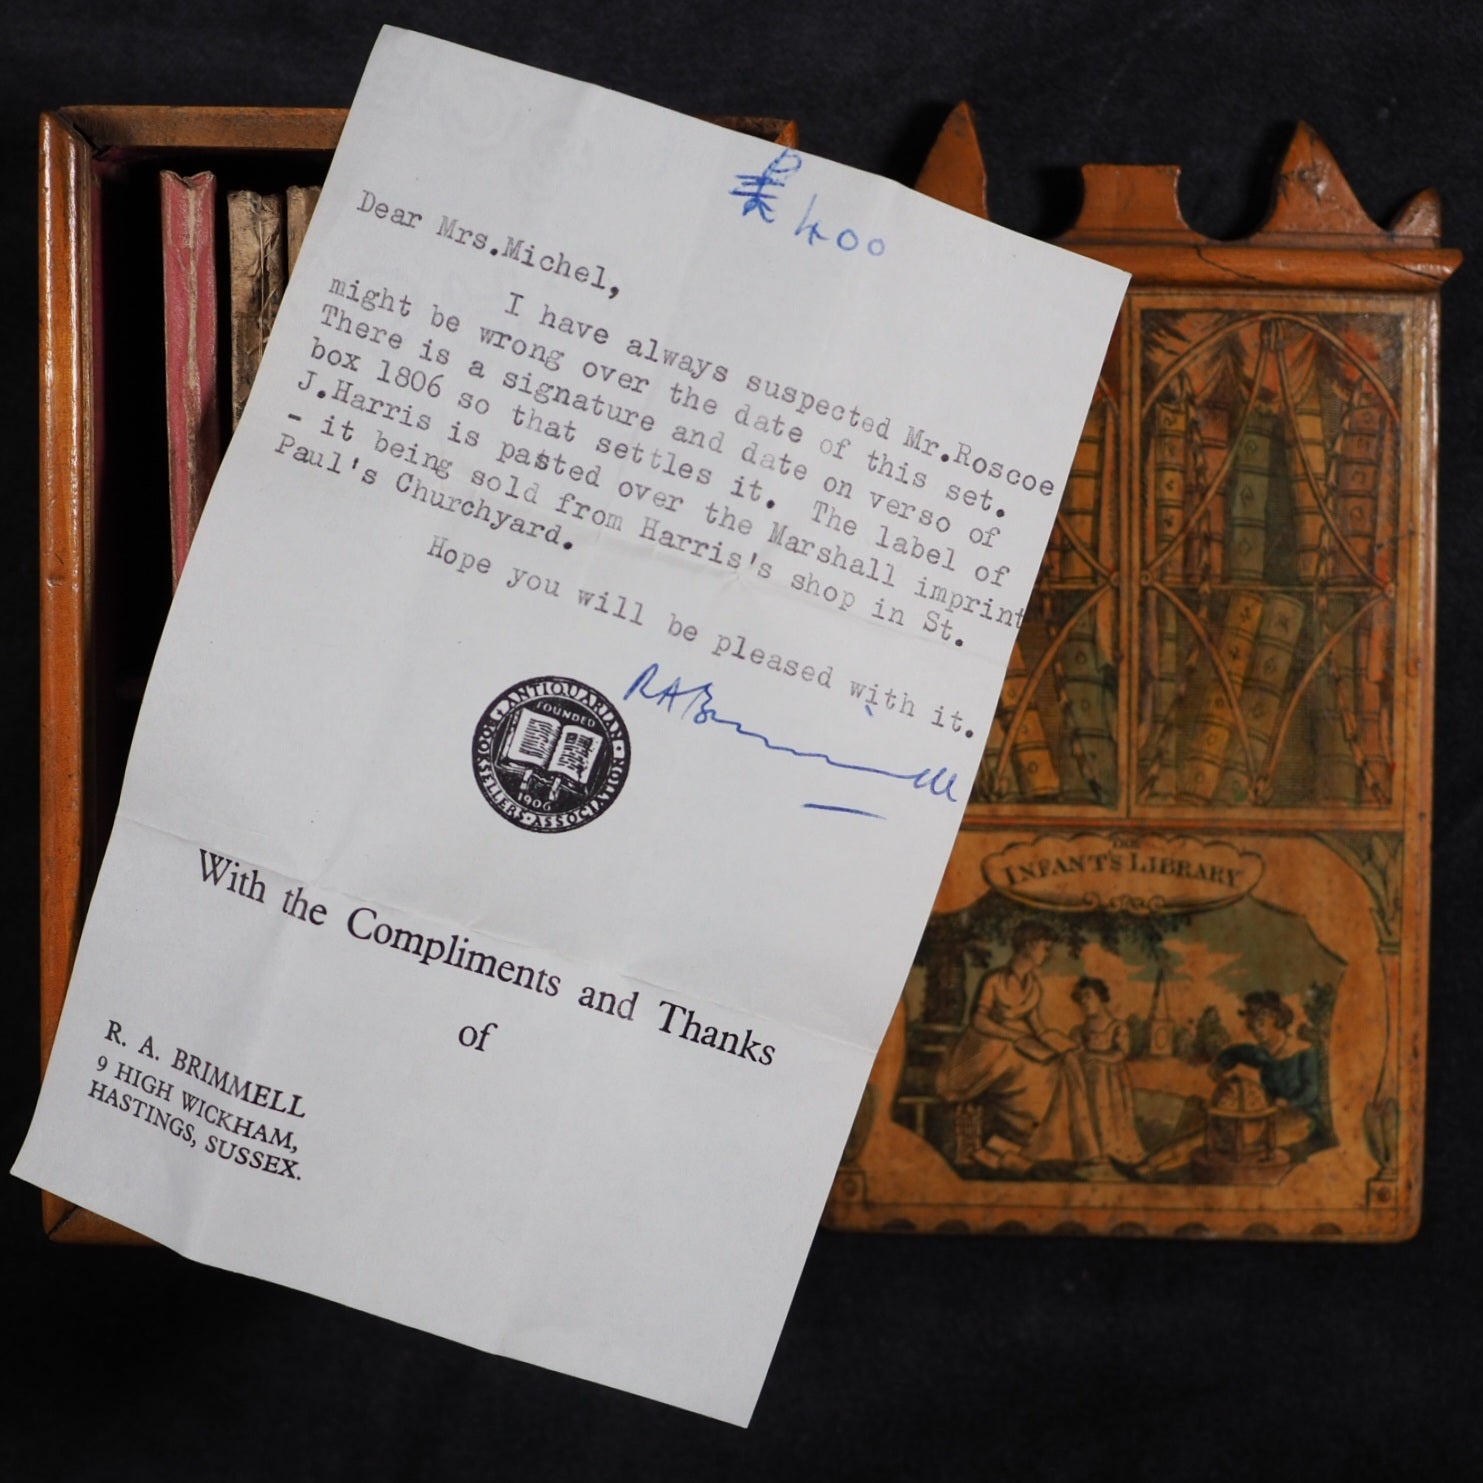 400
Dear Mrs.Michel,
I have always suspected Mr.Roscoe
might be wrong over the date of this set.
There is a signature and date on verso of
box 1806 so that settles it. The label of
J.Harris is pasted over the Marshall imprint
- it being sold from Harris's shop in St.
Paul's Churchyard.
Hope you will be pleased with it.
RABrimmell
ANTIQUARIAN · BOOKSELLERS · ASSOCIATION ·
FOUNDED
1906
With the Compliments and Thanks
of
R. A. BRIMMELL
9 HIGH WICKHAM,
HASTINGS, SUSSEX.
THE
INFANT'S LIBRARY